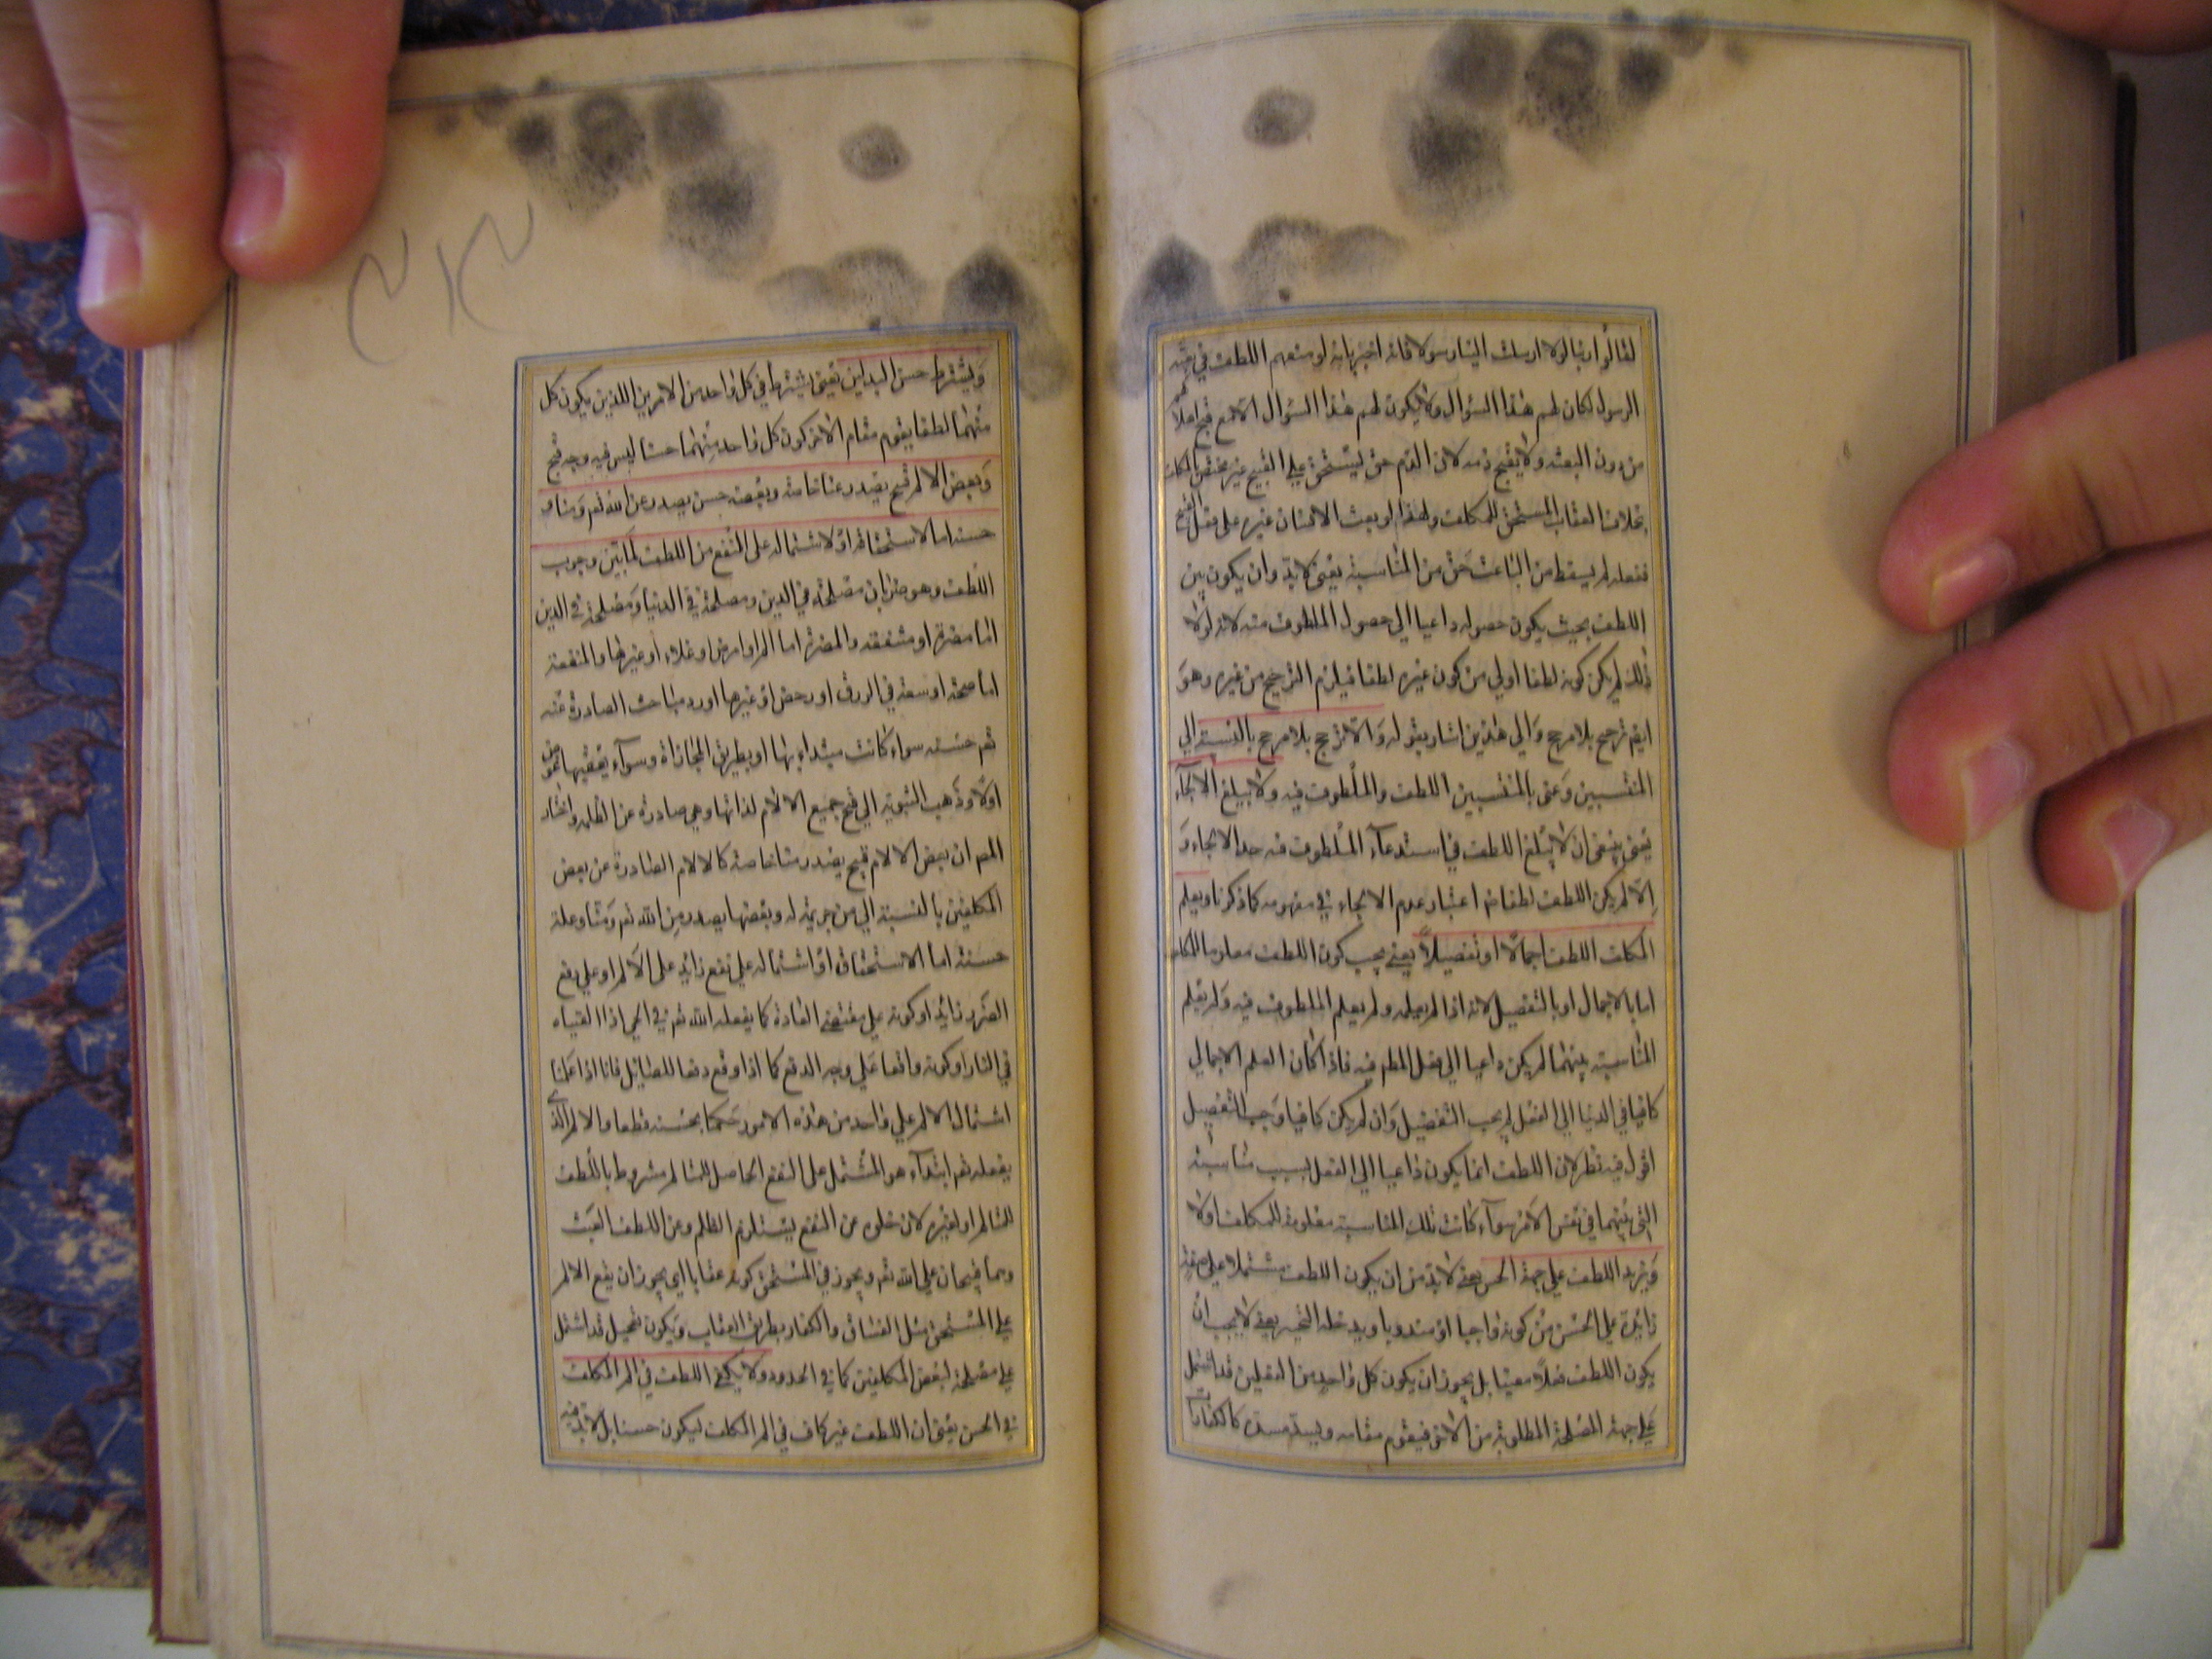 لقالوا ربنا لولا ارسلت الينا رسولا فانه اخبر بانه لو منعهم اللطف في بعثة
الرسول لكان لهم هذا السؤال ولا يكون لهم هذا السؤال الا مع قبح اهلاكهم
من دون البعثة ولا يقبح ذمه لان الذم حق يستحق على القبيح غير مختص بالمكلف
بخلاف العقاب المستحق للمكلف ولهذا لو بعث الانسان غيره على فعل القبيح
ففعله لم يسقط من الباعث حق من المناسبة يعنى لابد وان يكون بين
اللطف بحيث يكون حصوله داعيا الي حصول الملطوف منه لانه لولا
ذلك لم يكن كونه لطفا اولي من كون غيره لطفا فيلزم الترجيح من غيره وهو
ايضم ترجيح بلا مرجح والي هذين اشار بقوله والا ترجح بلا مرجح بالنسبة الي
المنتسبين وعنى بالمنتسبين اللطف والملطوف فيه ولا يبلغ الالجاء
يعنى ينبغي ان لا يبلغ اللطف في استدعاء الملطوف فيه حد الالجاء و
الا لم يكن اللطف لطفا اعتبار عدم الالجاء في مفهومه كما ذكرنا ويعلم
المكلف اللطف اجمالا او تفصيلا يعني يجب كون اللطف معلوما للمكلف
اما بالاجمال او بالتفصيل لانه اذا لم يعلمه ولم يعلم الملطوف فيه ولم يعلم
المناسبة بينهما لم يكن داعيا الي فعل الملطم فيه فاذا كان العلم الاجمالي
كافيا في الدعاء الي الفعل لم يجب التفصيل وان لم يكن كافيا وجب التفصيل
اقول فيه نظر لان اللطف انما يكون داعيا الي الفعل بسبب مناسبة
التي بينهما في نفس الامر سواء كانت تلك المناسبة معلومة للمكلف اولا
ويزيد اللطف على جهة الحسن يعني لابد من ان يكون اللطف مشتملا على صفة
زائدة على الحسن من كونه واجبا او مندوبا ويدخله التخيير يعني لا يجب ان
يكون اللطف فعلا معينا بل يجوز ان يكون كل واحد من الفعلين قد اشتمل
على جهة المصلحة المطلوبة من الاخر فيقوم مقامه ويسد مسده كالكفارات
ويشترط حسن البدلين يعنى يشترط في كل واحد من الامرين اللذين يكون كل
منهما لطفا يقوم مقام الاخر كون كل واحد منهما حسنا ليس فيه وجه قبح
وبعض الالم قبيح يصدر عنا خاصة وبعضه حسن يصدر عن الله تعم ومنا و
حسنه اما لاستحقاقه او لاشتماله على النفع من اللطف لما بين وجوب
اللطف وهو ضربان مصلحة في الدين ومصلحة في الدنيا ومصلحة في الدين
اما مضرة او منفعة والمضرة اما الم او امراض او غلاء او غيرها والمنفعة
اما صحة او سعة في الرزق او رخص او غيرها اورد مباحث الصادرة عنه
تعم حسنه سواء كانت مبتداء بها او بطريق المجازاة وسواء يعقبها عوض
اولا وذهب الثنوية الي قبح جميع الالام لذاتها وهي صادرة عن الظلمة واختار
المصم ان بعض الالام قبيح يصدر منا خاصة كالالام الصادرة عن بعض
المكلفين بالنسبة الي من جريمة له وبعضها يصدر من الله تعم ومنا وعلة
حسنه اما الاستحقاق او اشتماله علي نفع زائد على الالم او علي دفع
الضرر زائد او كونه علي مقتضى العادة كما يفعله الله تعم في الحي اذا القيناه
في النار او كونه واقعا على وجه الدفع كما اذا وقع دفعا للصائل فانا اذا علمنا
اشتمال الالم علي واحد من هذه الامور حكمنا بحسنه قطعا والالم الذي
يفعله تعم ابتداء هو المشتمل على النفع الحاصل للمتالم مشروط باللطف
للمتالم او لغيره لان خلوه عن النفع يستلزم الظلم وعن اللطف العبث
وهما قبيحان علي الله تعم ويجوز في المستحق كونه عقابا اي يجوز ان يقع الالم
علي المستحق مثل الفساق والكفار بطريق العقاب ويكون تعجيل قد اشتمل
على مصلحة لبعض المكلفين كما في الحدود ولا يكفي اللطف في الم المكلف
في الحسن يعنى ان اللطف غير كاف في الم المكلف ليكون حسنا بل لابد فيه